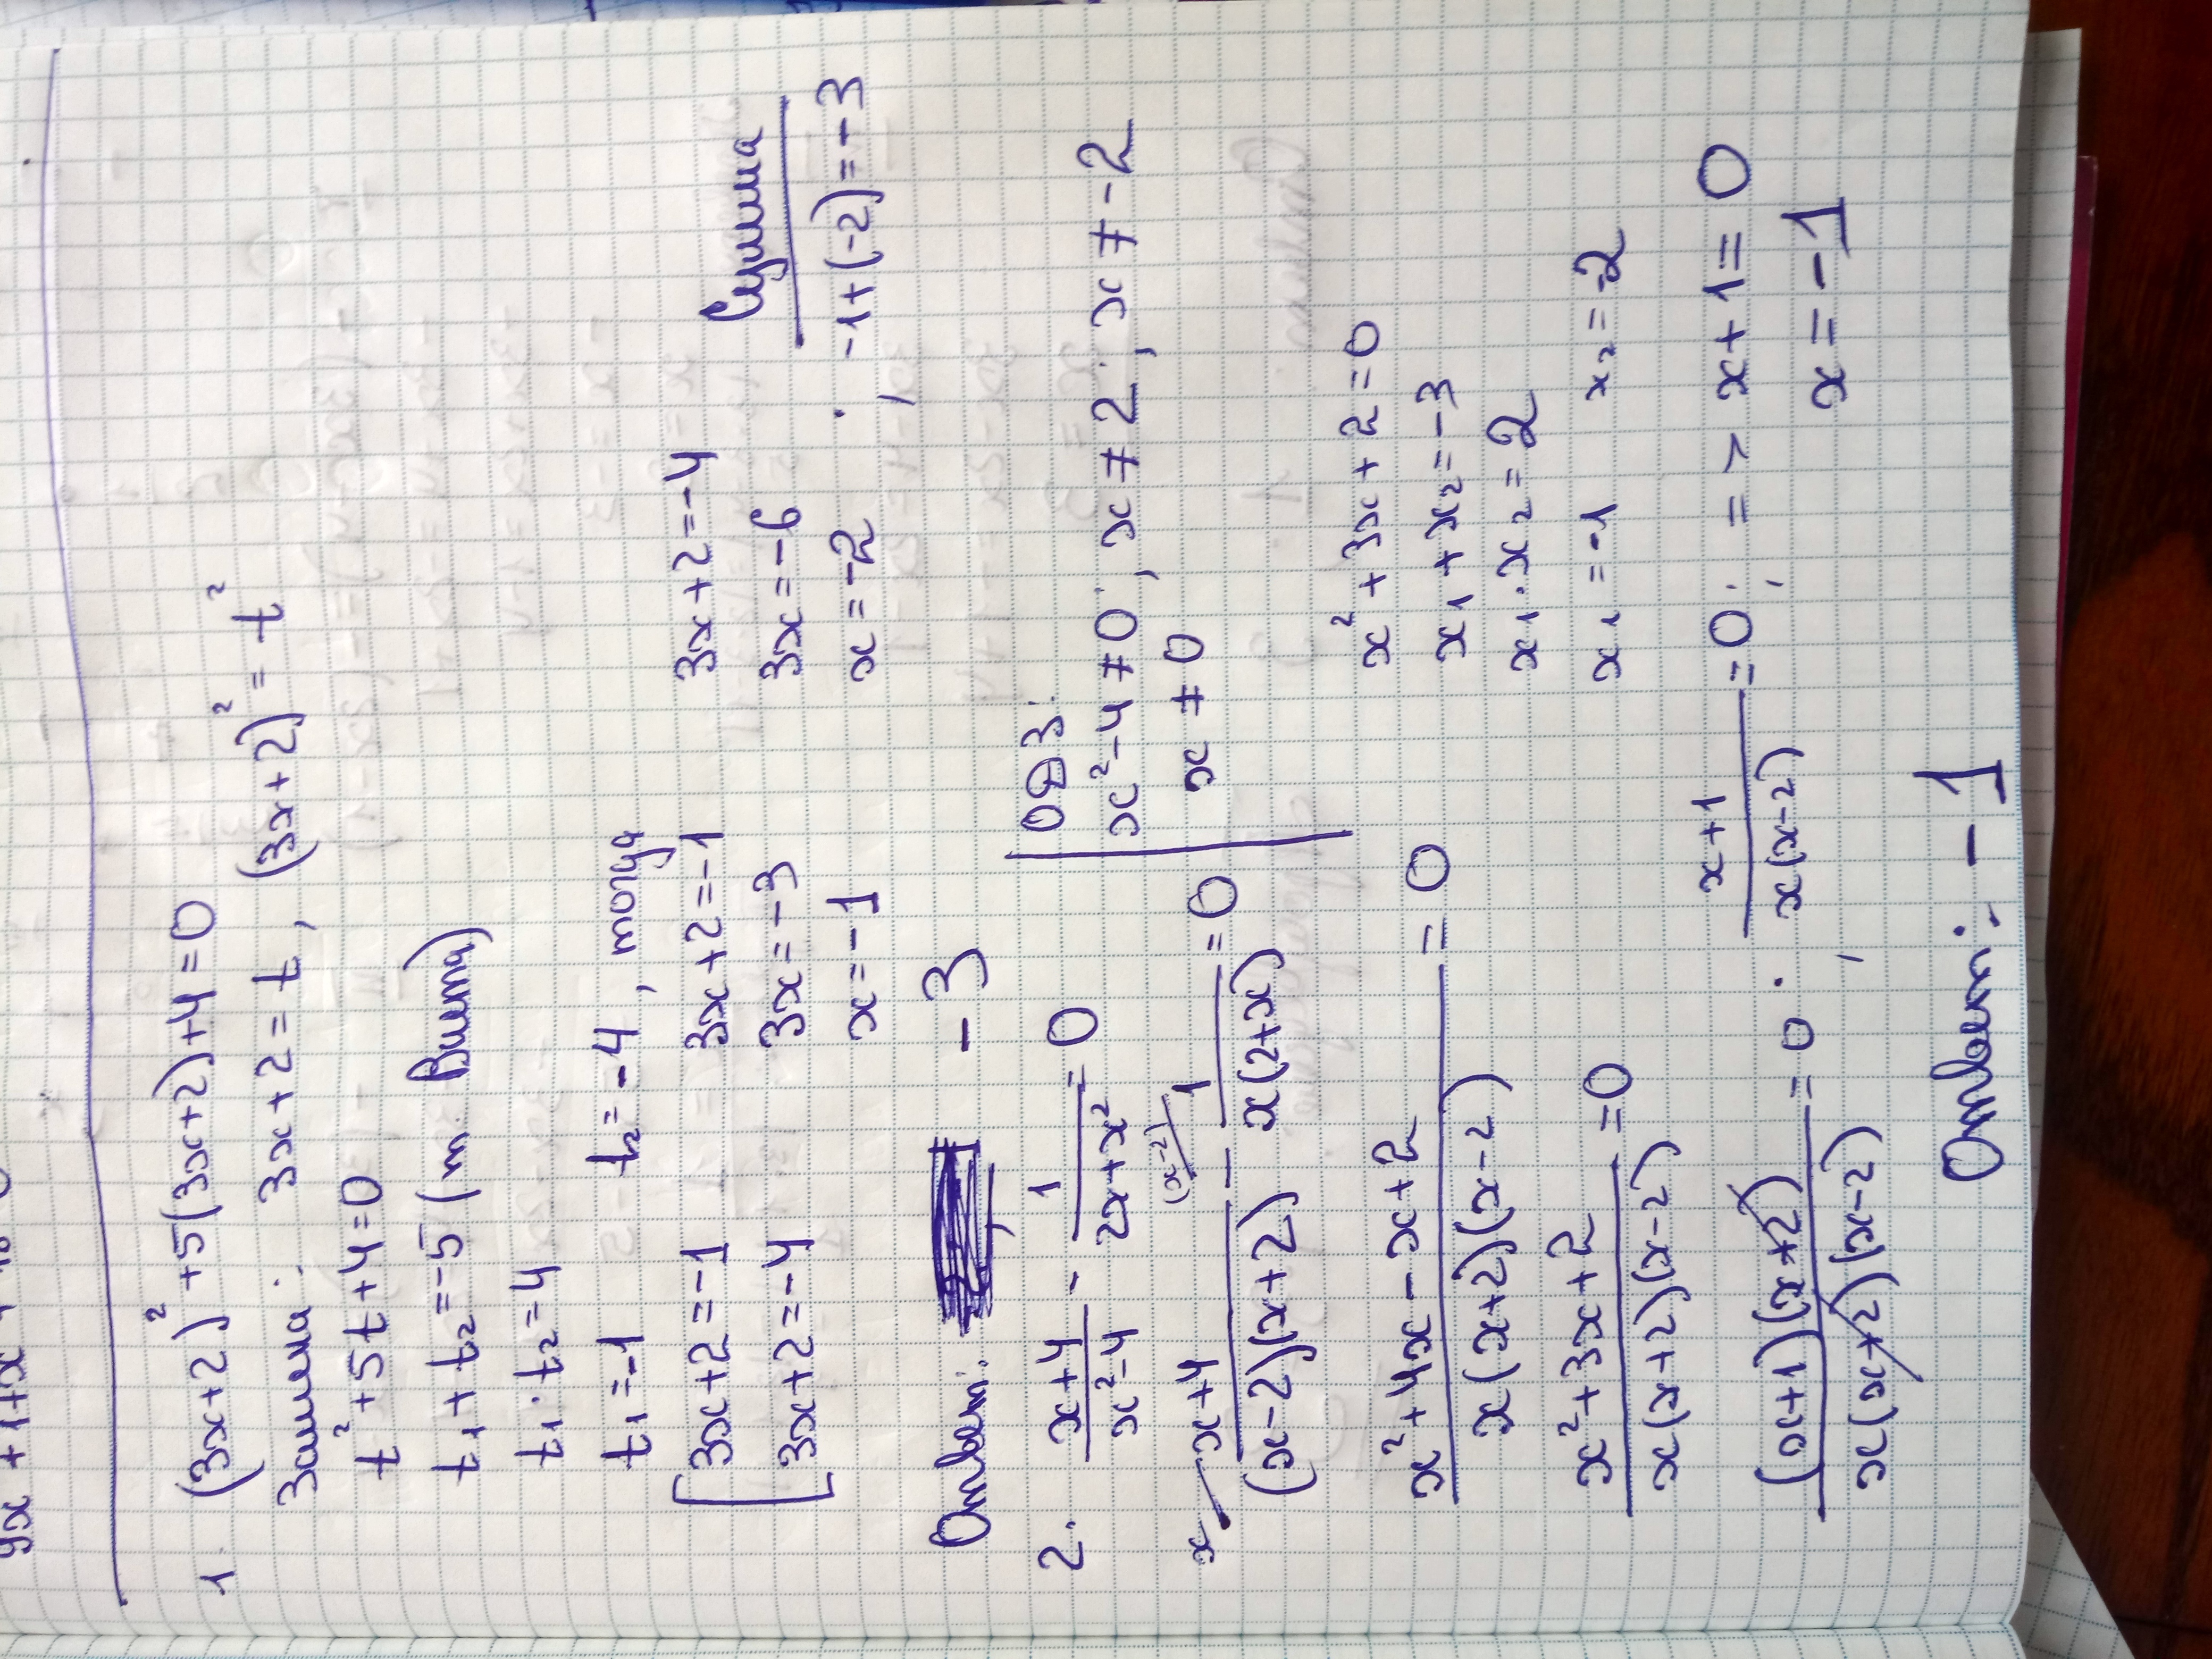 1. (3x+2)² +5(3x+2)+4=0
Замена: 3x+2=t, (3x+2)²=t²
t²+5t+4=0
t₁+t₂=-5 (т. Виета)
t₁·t₂=4
t₁=-1 t₂=-4, тогда
[3x+2=-1 3x+2=-1 3x+2=-4 Сумма
3x+2=-4 3x=-3 3x=-6 -1+(-2)=-3
x=-1 x=-2;
Ответ: -3
2. (x+4)/(x²-4) - 1/(2x+x²) = 0
ОДЗ:
x²-4≠0; x≠2; x≠-2
x≠0
x (x+4)/((x-2)(x+2)) - (x-2) 1/(x(2+x)) =0
(x²+4x-x+2)/(x(x+2)(x-2)) = 0
x²+3x+2=0
x₁+x₂=-3
x₁·x₂=2
x₁=-1 x₂=-2
(x²+3x+2)/(x(x+2)(x-2)) =0
((x+1)(x+2))/(x(x+2)(x-2)) =0; (x+1)/(x(x-2)) =0; => x+1=0
x=-1
Ответ: -1